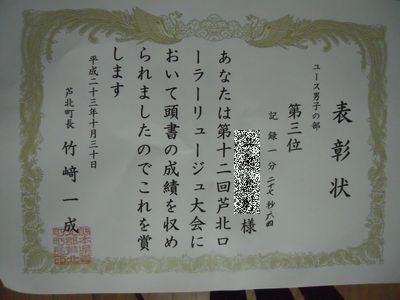 表彰状
ユース男子の部
第三位
記録一分二十七秒六四
様
あなたは第十二回芦北ロ
ーラーリュージュ大会に
おいて頭書の成績を収め
られましたのでこれを賞
します
平成二十三年十月三十日
芦北町長 竹﨑一成